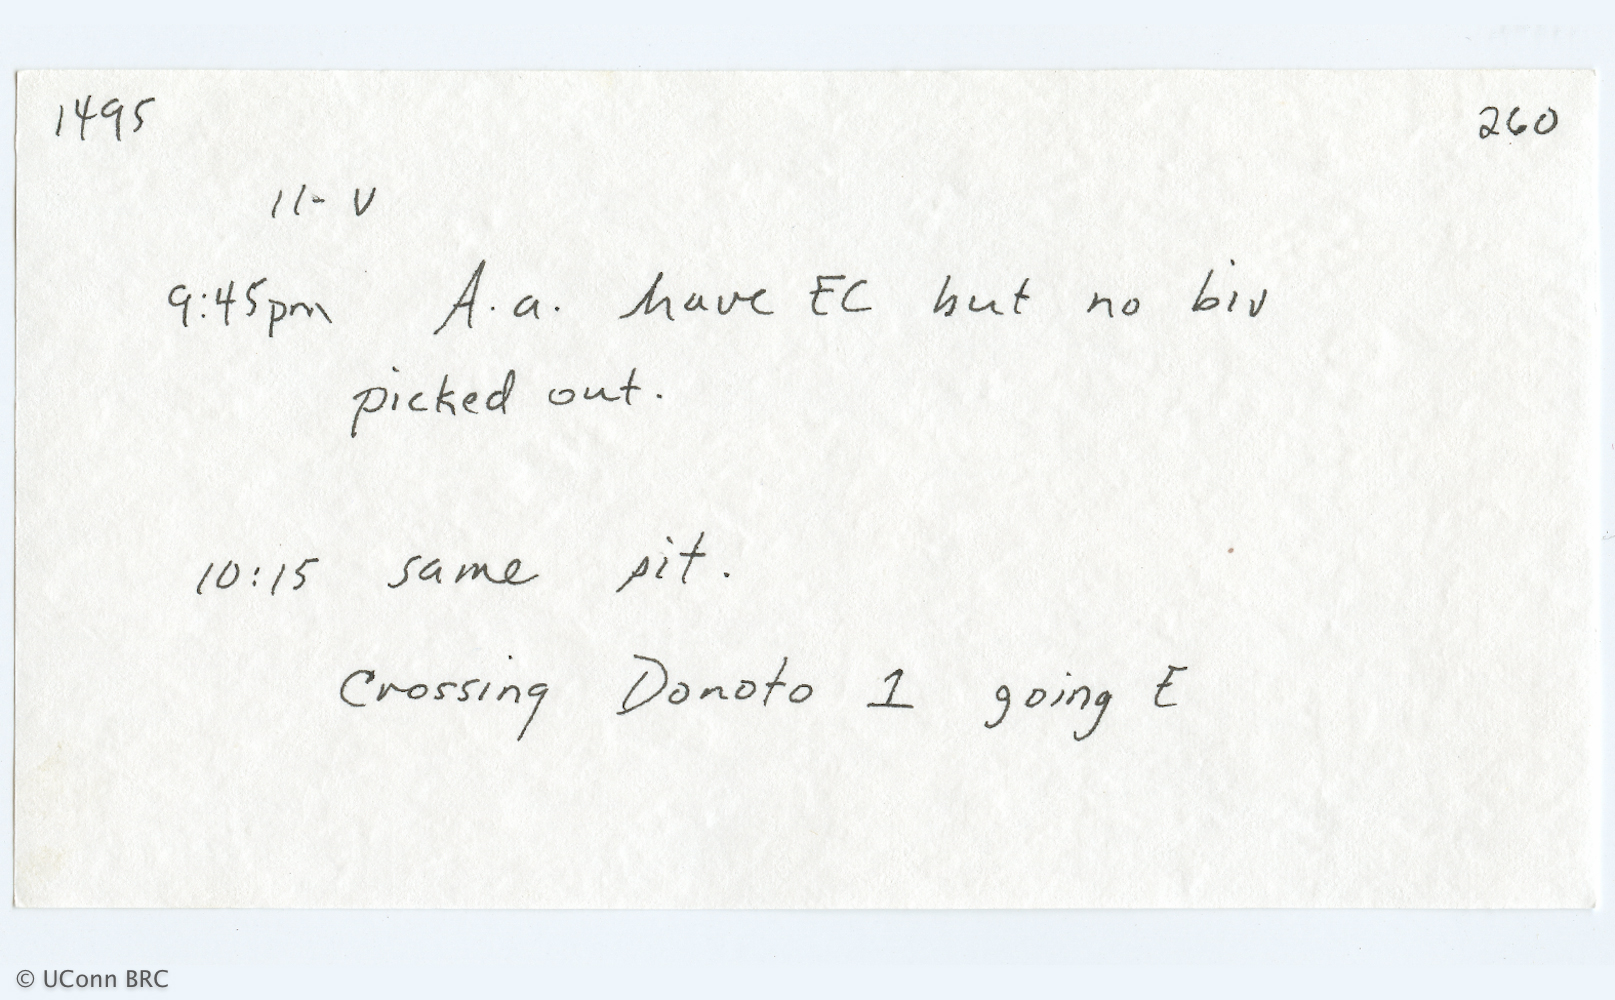 1495 260
11-V
9:45pm A.a. have EC but no biv
picked out.
10:15 same sit.
Crossing Donoto 1 going E
© UConn BRC